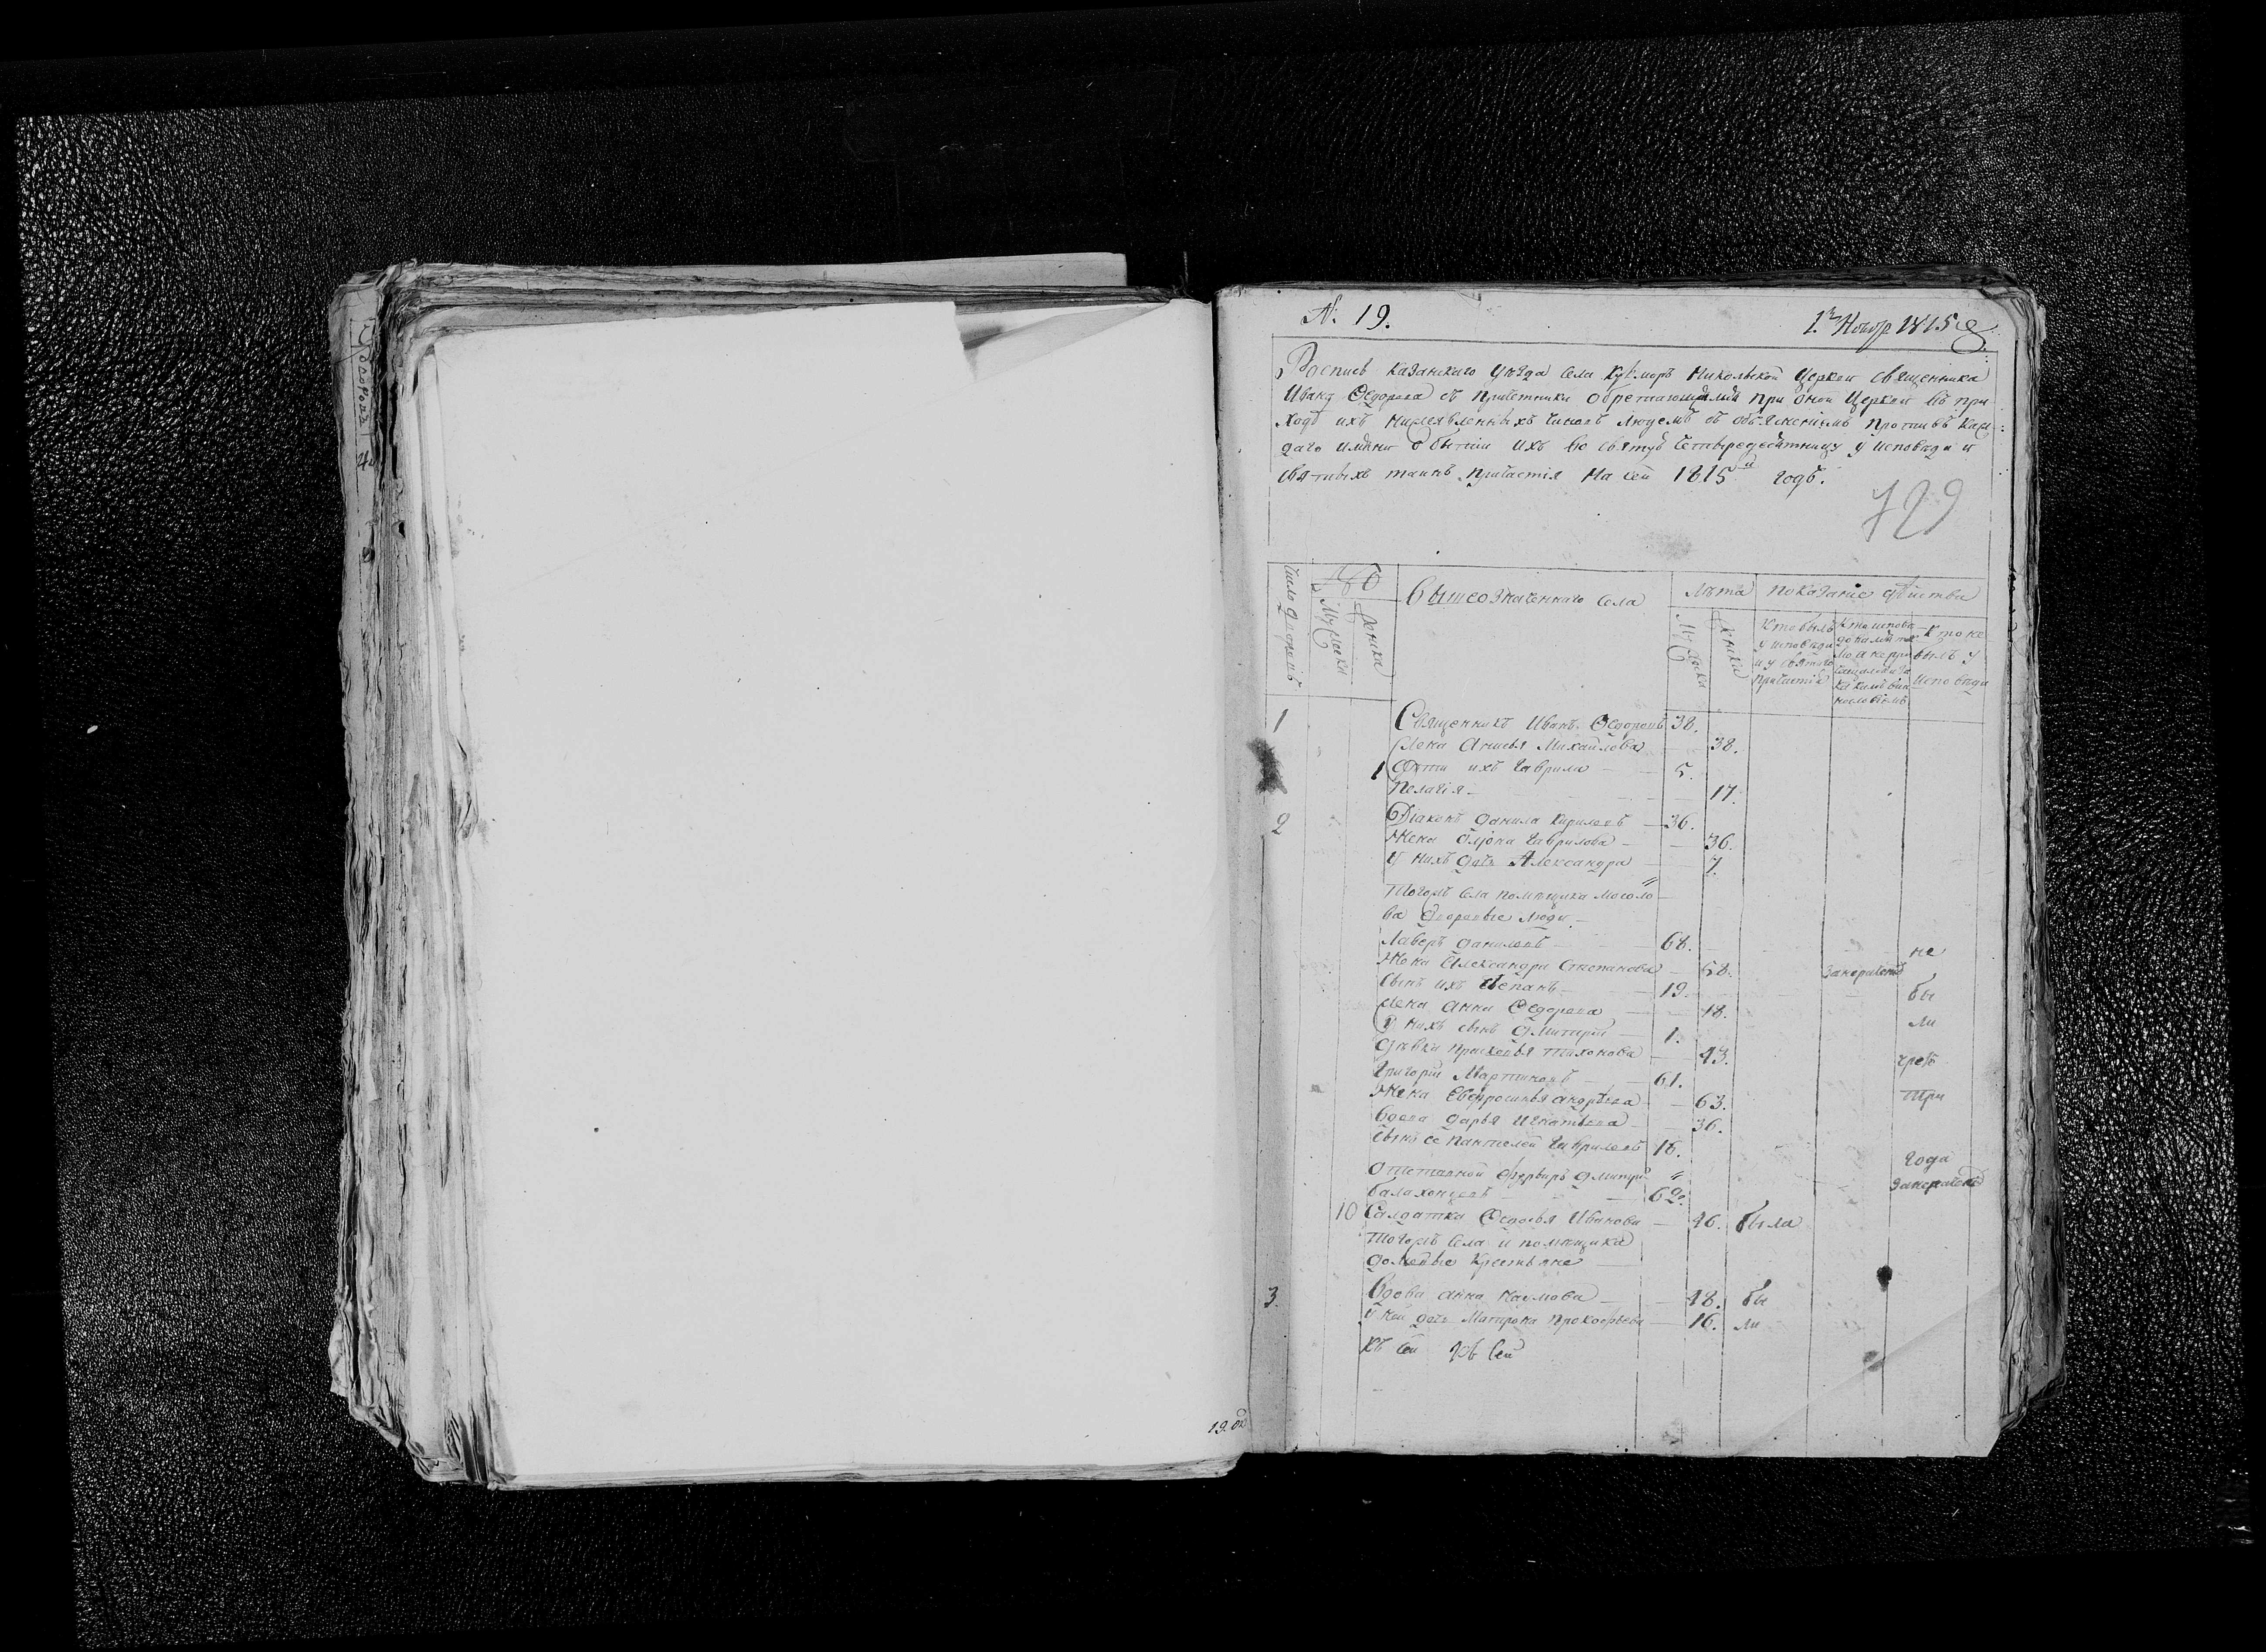 № 19.
1. Ноябр 1815
Роспись Казанскаго Уѣзда Села Кукморъ Никольской Церкви Священника
Ивана Ѳедорова съ причетники обретающимися при оной Церкви въ при
ходѣ ихъ нижеявленныхъ чиновъ людемъ съ объясненіемъ противъ каж
даго имяни о бытіи ихъ во святую четыредесятницу у исповѣди и
святыхъ таинъ причастія на сей 1815й годъ.
729
Число дворовъ
Мужеска
Женска
Вышеозначеннаго села
Лѣта
Показаніе дѣйства
Мужеска
Женска
Кто былъ
у исповѣди
и у святаго
причастія
Кто исповѣ
до
Кто не
былъ у
исповѣди
1 Священникъ Иванъ Ѳедоровъ 38.
Жена Анисья Михайлова 38.
1 Дѣти ихъ Гаврила 5.
Пелагія 17.
2 Діаконъ Данила Кирилевъ 36.
Жена Алѳона Гаврилова 36.
У нихъ дочь Александра 7.
Тогожъ села помѣщика Мосоло
ва дворовые люди
Лаверъ Данилевъ 68. не
Жена Александра Степанова 58. занерачені
Сынъ ихъ Степанъ 19. бы
Жена Анна Ѳедорова 18. ли
У нихъ сынъ Дмитрій 1.
Дѣвка Прасковья Тихонова 43. чрез
Григорій Мартиновъ 61.
Жена Евфросинья Андрѣева 63. три
Вдова Дарья Игнатьева 36.
Сынъ ее Пантелей Гаврилевъ 16. года
Отставной фурьиръ Дмитрі
Балахонцевъ 62. занерачені
10 Салдатка Ѳедосья Иванова 46. была
Тогожъ села и помѣщика
домовые крестьяне
3. Вдова Анна Наумова 48. бы
У ней дочь Матрона Прокофьева 16. ли
Къ сей
19. об